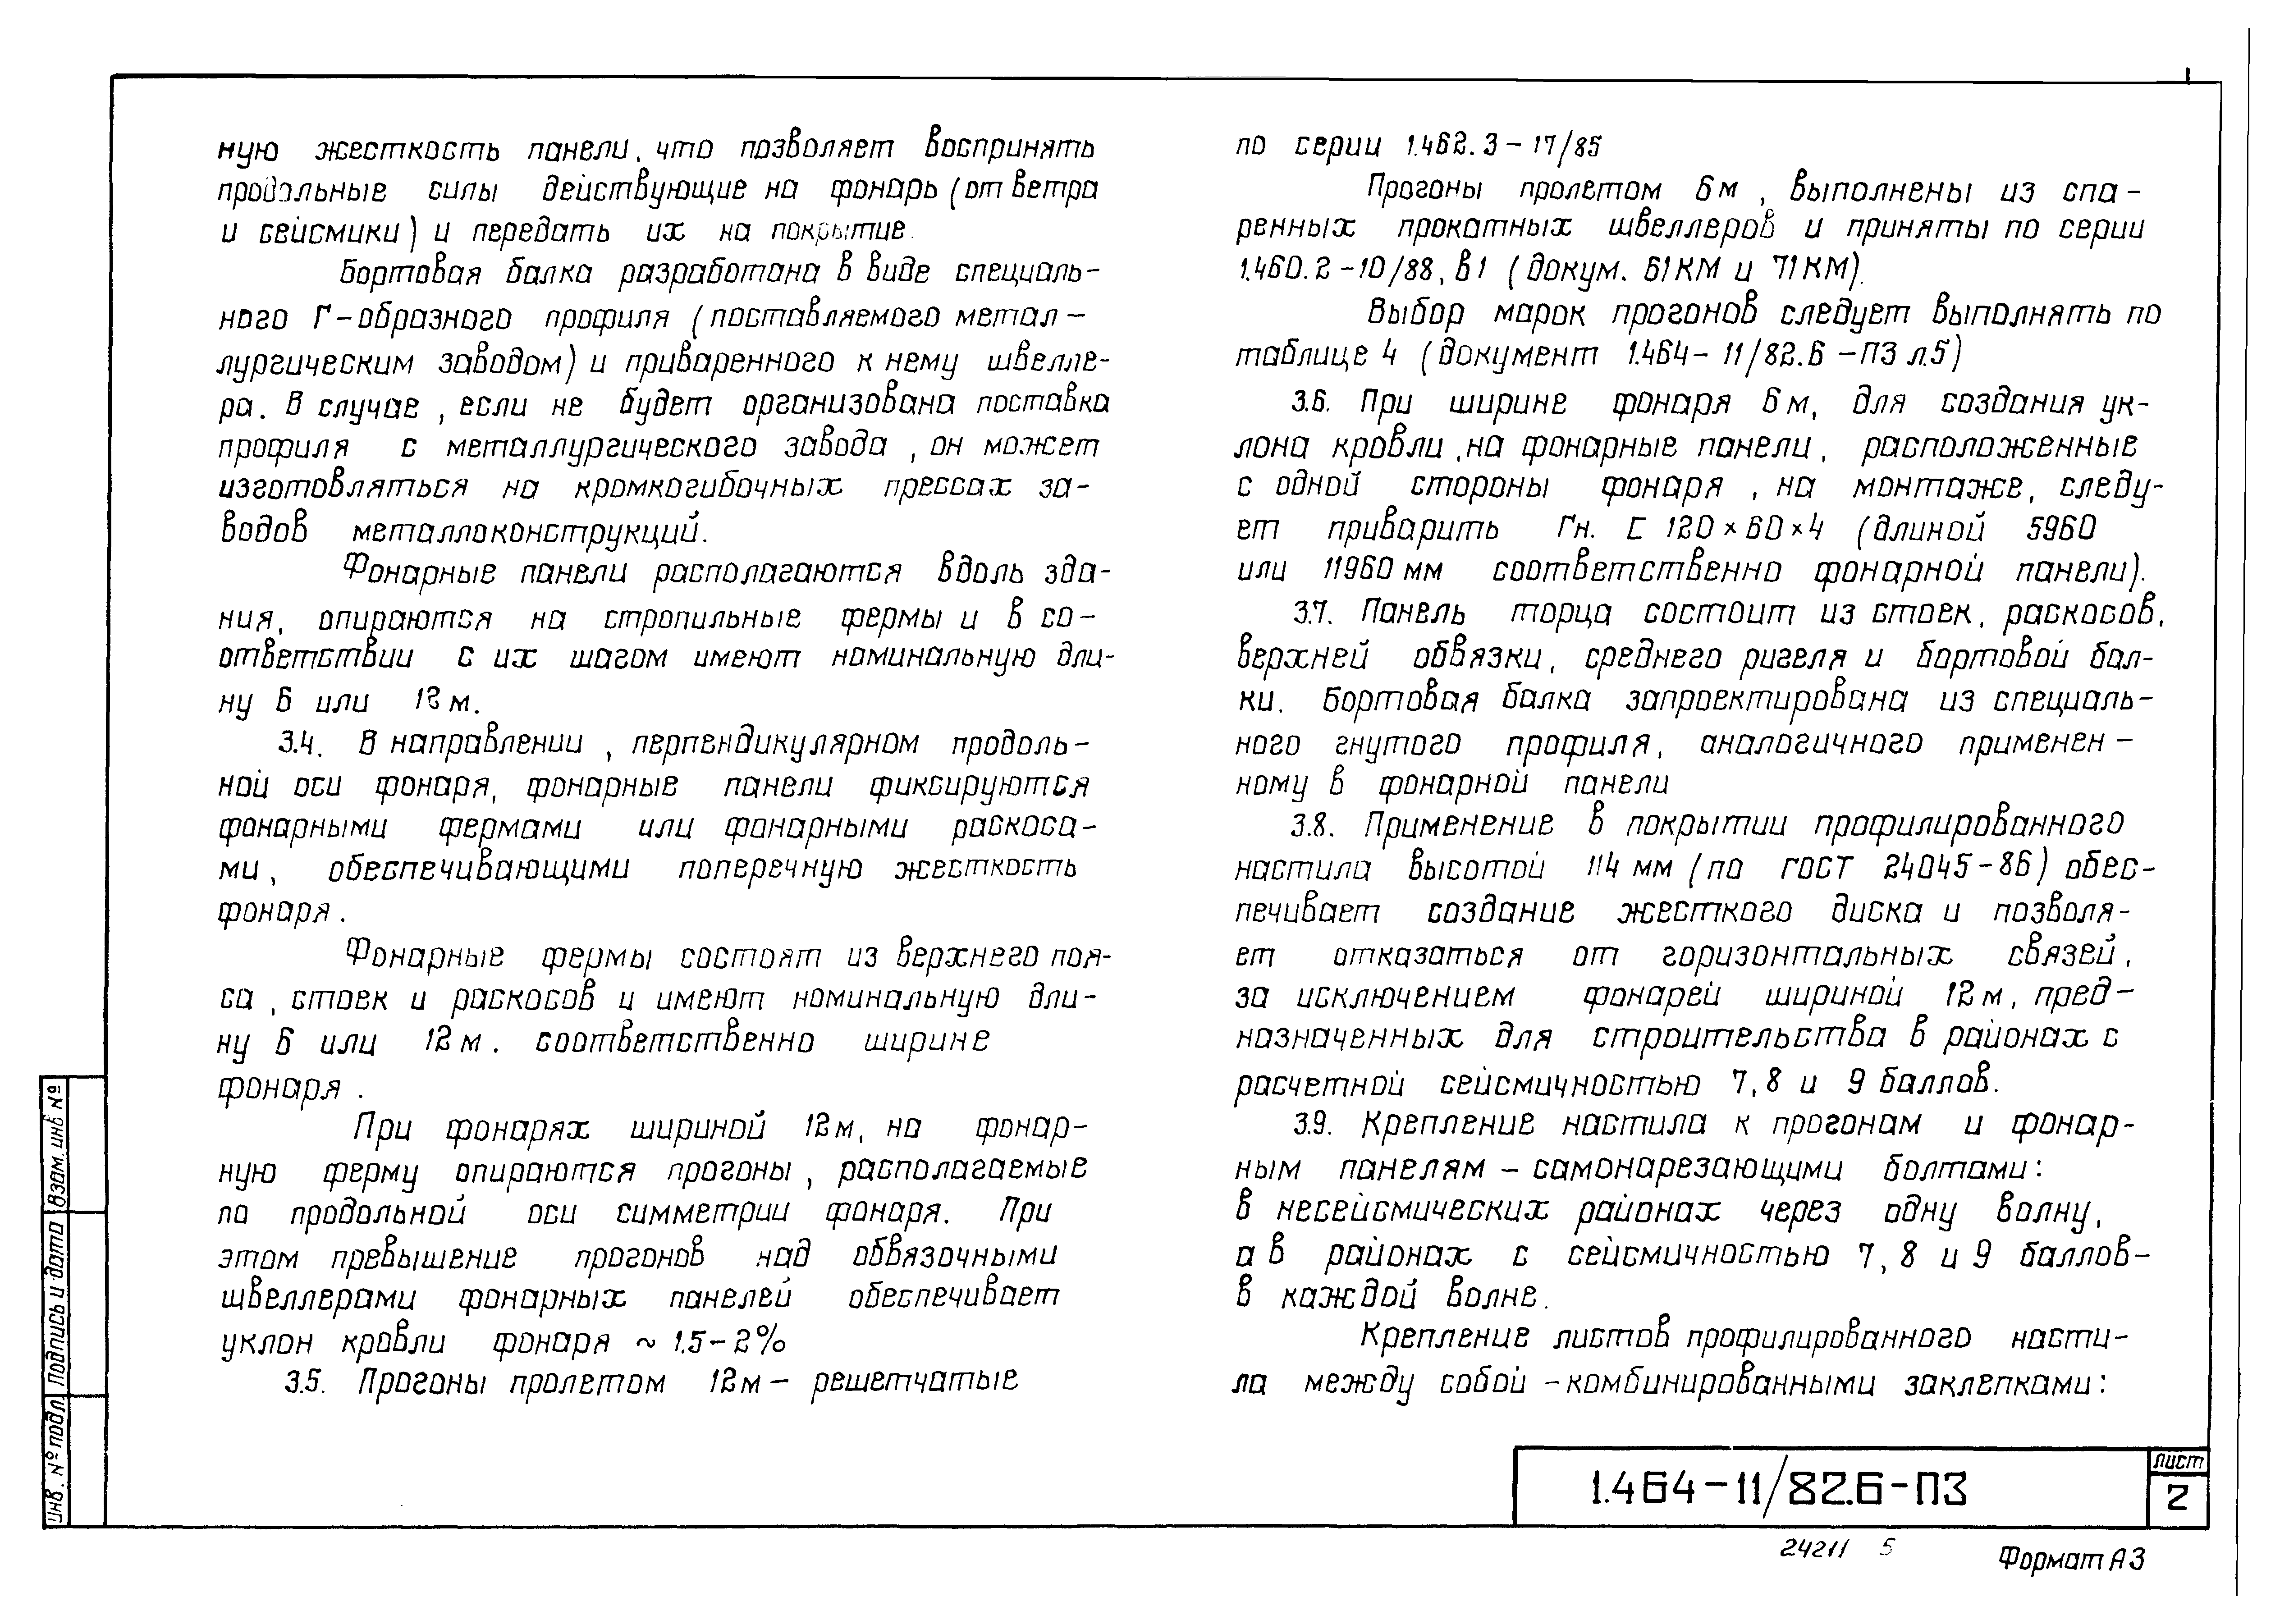 ную жесткость панели, что позволяет воспринять
продольные силы действующие на фонарь (от ветра
и сейсмики) и передать их на покрытие.
Бортовая балка разработана в виде специаль-
ного Г-образного профиля (поставляемого метал-
лургическим заводом) и приваренного к нему швелле-
ра. В случае, если не будет организована поставка
профиля с металлургического завода, он может
изготовляться на кромкогибочных прессах за-
водов металлоконструкций.
Фонарные панели располагаются вдоль зда-
ния, опираются на стропильные фермы и в со-
ответствии с их шагом имеют номинальную дли-
ну 6 или 12 м.
3.4. В направлении, перпендикулярном продоль-
ной оси фонаря, фонарные панели фиксируются
фонарными фермами или фонарными раскоса-
ми, обеспечивающими поперечную жесткость
фонаря.
Фонарные фермы состоят из верхнего поя-
са, стоек и раскосов и имеют номинальную дли-
ну 6 или 12 м. соответственно ширине
фонаря.
При фонарях шириной 12 м, на фонар-
ную ферму опираются прогоны, располагаемые
по продольной оси симметрии фонаря. При
этом превышение прогонов над обвязочными
швеллерами фонарных панелей обеспечивает
уклон кровли фонаря ~ 1.5-2%
3.5. Прогоны пролетом 12 м - решетчатые
по серии 1.462.3-17/85
Прогоны пролетом 6 м, выполнены из спа-
ренных прокатных швеллеров и приняты по серии
1.460.2-10/88, в1 (докум. 61КМ и 71КМ).
Выбор марок прогонов следует выполнять по
таблице 4 (документ 1.464-11/82.6-ПЗ л.5)
3.6. При ширине фонаря 6 м, для создания ук-
лона кровли, на фонарные панели, расположенные
с одной стороны фонаря, на монтаже, следу-
ет приварить Гн. С 120×60×4 (длиной 5960
или 11960 мм соответственно фонарной панели).
3.7. Панель торца состоит из стоек, раскосов,
верхней обвязки, среднего ригеля и бортовой бал-
ки. Бортовая балка запроектирована из специаль-
ного гнутого профиля, аналогичного применен-
ному в фонарной панели
3.8. Применение в покрытии профилированного
настила высотой 114 мм (по ГОСТ 24045-86) обес-
печивает создание жесткого диска и позволя-
ет отказаться от горизонтальных связей,
за исключением фонарей шириной 12 м, пред-
назначенных для строительства в районах с
расчетной сейсмичностью 7, 8 и 9 баллов.
3.9. Крепление настила к прогонам и фонар-
ным панелям - самонарезающими болтами:
в несейсмических районах через одну волну,
а в районах с сейсмичностью 7, 8 и 9 баллов-
в каждой волне.
Крепление листов профилированного насти-
ла между собой - комбинированными заклепками:
Инв. № подл.
Подпись и дата
Взам. инв №
1.464-11/82.6-ПЗ
Лист
2
24211 5
Формат А3